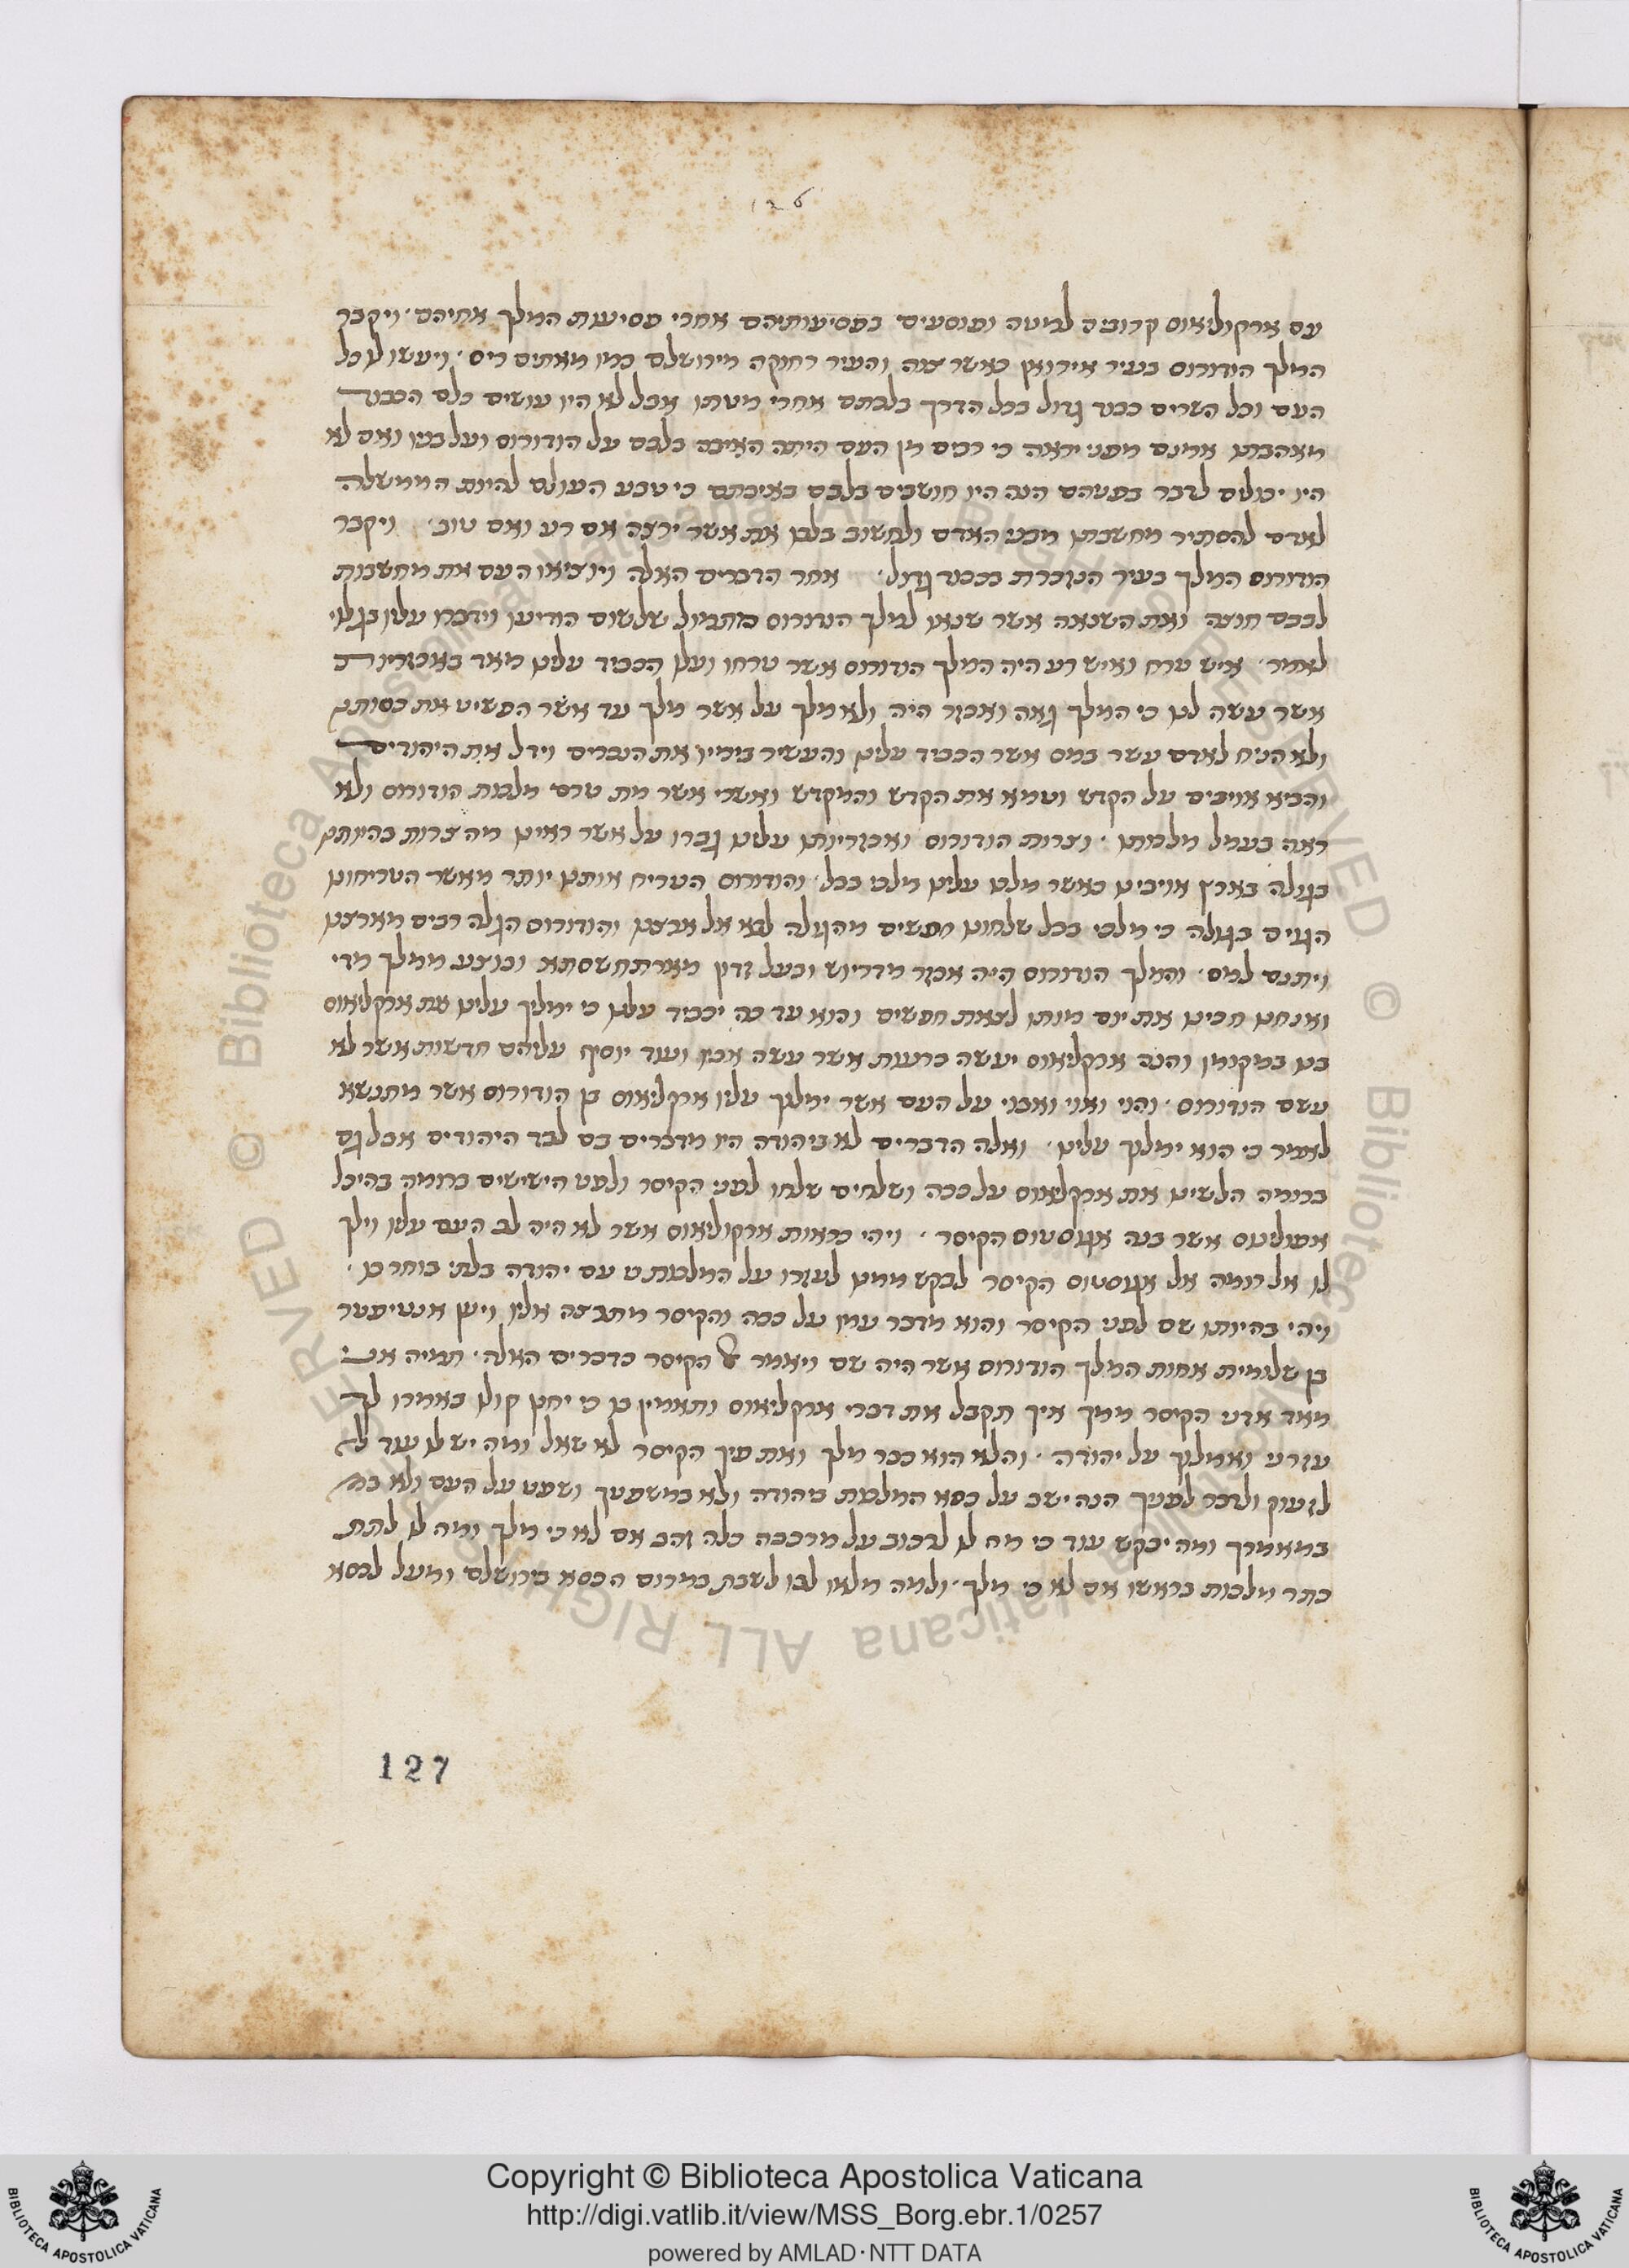 126
עם ארקוליאוס קרובים למטה ונוסעים במסיעותיהם אחרי מסיעות המלך אחיהם · ויקבר
המלך הורודוס בעיר אירואן כאשר צוה והעיר רחוקה מירושלם כמו מאתים ריס · ויעשו לו כל
העם וכל השרים כבוד גדול בכל הדרך בלכתם אחרי מטתו אבל לא היו עושים כלם הכבוד
מאהבתו אמנם מפני יראה כי רבים מן העם היתה האיבה בלבם על הורודוס ועל בניו ואם לא
היו יכולים לדבר בפיהם הנה היו חושבים בלבם באיבתם כי טבע העולם להיות הממשלה
לאדם להסתיר מחשבתו מבני האדם ולחשוב בלבו את אשר ירצה אם רע ואם טוב · ויקבר
הורודוס המלך בעיר הנזכרת בכבוד גדול · אחר הדברים האלה ויוציאו העם את מחשבות
לבבם חוצה ואת השנאה אשר שנאו למלך הורודוס מתמול שלשום הודיעו וידברו עליו בגלוי
לאמר · איש טרח ואיש רע היה המלך הורודוס אשר טרחו ועלו הכביד עלינו מאד באכזריות
אשר עשה לנו כי המלך גאה ואכזר היה ולא מלך על אשר מלך עד אשר הפשיט את כסותנו
ולא הניח לאדם עשר במס אשר הכביד עלינו והעשיר בימיו את הנכרים וידל את היהודים
והביא אויבים על הקדש וטמא את הקדש והמקדש ואשרי אשר מת טרם מלכות הורודוס ולא
ראה בעמל מלכותו · וצרות הורודוס ואכזריותו עלינו גברו על אשר ראינו מה צרות בהיותנו
בגולה בארץ אויבינו כאשר מלכו עלינו מלכי בבל · והורודוס הטריח אותנו יותר מאשר הטריחונו
הגוים בגולה כי מלכי בבל שלחונו חפשים מהגולה לבא אל ארצנו והורודוס הגלה רבים מארצנו
ויתנם למס · והמלך הורודוס היה אכזר מדריוש ובעל זדון מארתחשסתא ובוצע ממלך מדי
ואנחנו חכינו את יום מותו לצאת חפשים והוא עד כה יכביד עלינו כי ימליך עלינו את ארקליאוס
בנו במקומו והנה ארקליאוס יעשה כרעות אשר עשה אביו ועוד יוסיף עליהם חדשות אשר לא
עשם הורודוס · והוי ואוי ואבוי על העם אשר ימלוך עליו ארקליאוס בן הורודוס אשר מתנשא
לאמר כי הוא ימלוך עלינו · ואלה הדברים לא ביהודה היו מדברים בם לבד היהודים אבל גם
ברומה הלשינו את ארקליאוס על ככה ושלוחים שלחו לפני הקיסר ולפני הישישים ברומה בהיכל
אפולינוס אשר בנה אגוסטוס הקיסר · ויהי כראות ארקוליאוס אשר לא היה לב העם עליו וילך
לו אל רומה אל אגוסטוס הקיסר לבקש ממנו לעזרו על המלכות עם יהודה בלתי בוחר בו ·
ויהי בהיותו שם לפני הקיסר והוא מדבר עמו על ככה והקיסר מתרצה אליו ויען אנטיפטר
בן שלומית אחות המלך הורודוס אשר היה שם ויאמר הקיסר כדברים האלה · תמיה אני
מאד אדני הקיסר ממך איך תקבל את דברי ארקליאוס ותאמין בו כי יחנן קולו באמרו לך
עזרני ואמלוך על יהודה · והלא הוא כבר מלך ואת פיך הקיסר לא שאל ומה יש לו עוד
לזעוק ולדבר לפניך הנה ישב על כסא המלכות ביהודה ולא במשפטך ושפט על העם ולא
במאמרך ומה יבקש עוד כי מה לו לרכוב על מרכבה כלה זהב אם לא כי מלך ומה לו לתת
כתר מלכות בראשו אם לא כי מלך · ולמה מלאו לבו לשבת במרום הכסא בירושלם ומעל לכסא
127
Copyright © Biblioteca Apostolica Vaticana
http://digi.vatlib.it/view/MSS_Borg.ebr.1/0257
powered by AMLAD·NTT DATA
BIBLIOTECA APOSTOLICA VATICANA
BIBLIOTECA APOSTOLICA VATICANA